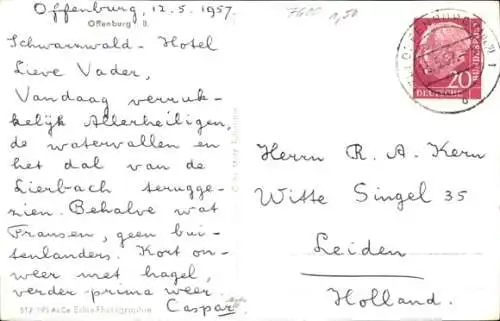 Offenburg, 12.5.1957.
Offenburg
Schwarzwald-Hotel
Lieve Vader,
Vandaag verruk-
kelijk Allerheiligen,
de watervallen en
het dal van de
Lierbach terugge-
zien. Behalve wat
Fransen, geen bui-
tenlanders. Kort on-
weer met hagel,
verder prima weer.
Caspar
Echte Photographie
20
DEUTSCHE
Herrn R. A. Kern
Witte Singel 35
Leiden
Holland.